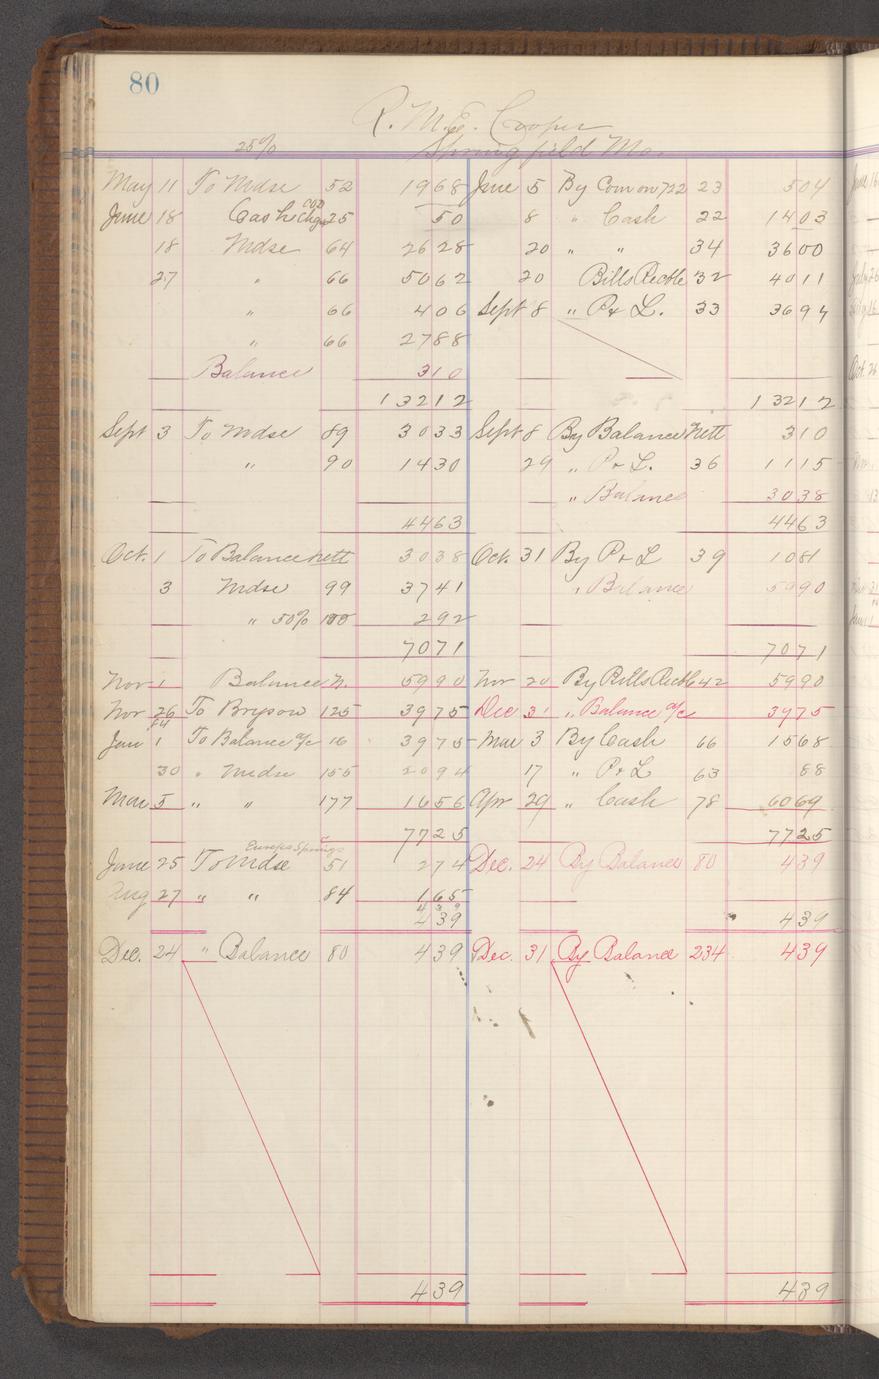 80
R. M. E. Cooper
25% Springfield Mo.
May 11 To Mdse 52 1968 June 5 By Com on 722 23 504
June 18 Cash COD Chgs 25 50 8 " Cash 22 1403
18 Mdse 64 2628 20 " " 34 3600
27 " 66 5062 20 Bills Recble 32 4011
" 66 406 Sept 8 " P & L. 33 3694
" 66 2788
Balance 310
13212 13212
Sept 3 To Mdse 89 3033 Sept 8 By Balance nett 310
" 90 1430 29 " P & L. 36 1115
" Balance 3038
4463 4463
Oct. 1 To Balance nett 3038 Oct. 31 By P & L 39 1081
3 Mdse 99 3741 " Balance 5990
" 50% 100 292
7071 7071
Nov 1 Balance n. 5990 Nov 20 By Bills Recble 42 5990
Nov 26 To 125 3975 Dec 31 " Balance a/c 3975
84
Jan 1 To Balance a/c 16 3975 Mar 3 By Cash 66 1568
30 " Mdse 155 2094 17 " P & L 63 88
Mar 5 " " 177 1656 Apr 29 " Cash 78 6069
7725 7725
Eureka Springs
June 25 To Mdse 51 274 Dec. 24 By Balance 80 439
Aug 27 " " 84 165
439
439 439
Dec. 24 " Balance 80 439 Dec. 31 By Balance 234 439
439 439